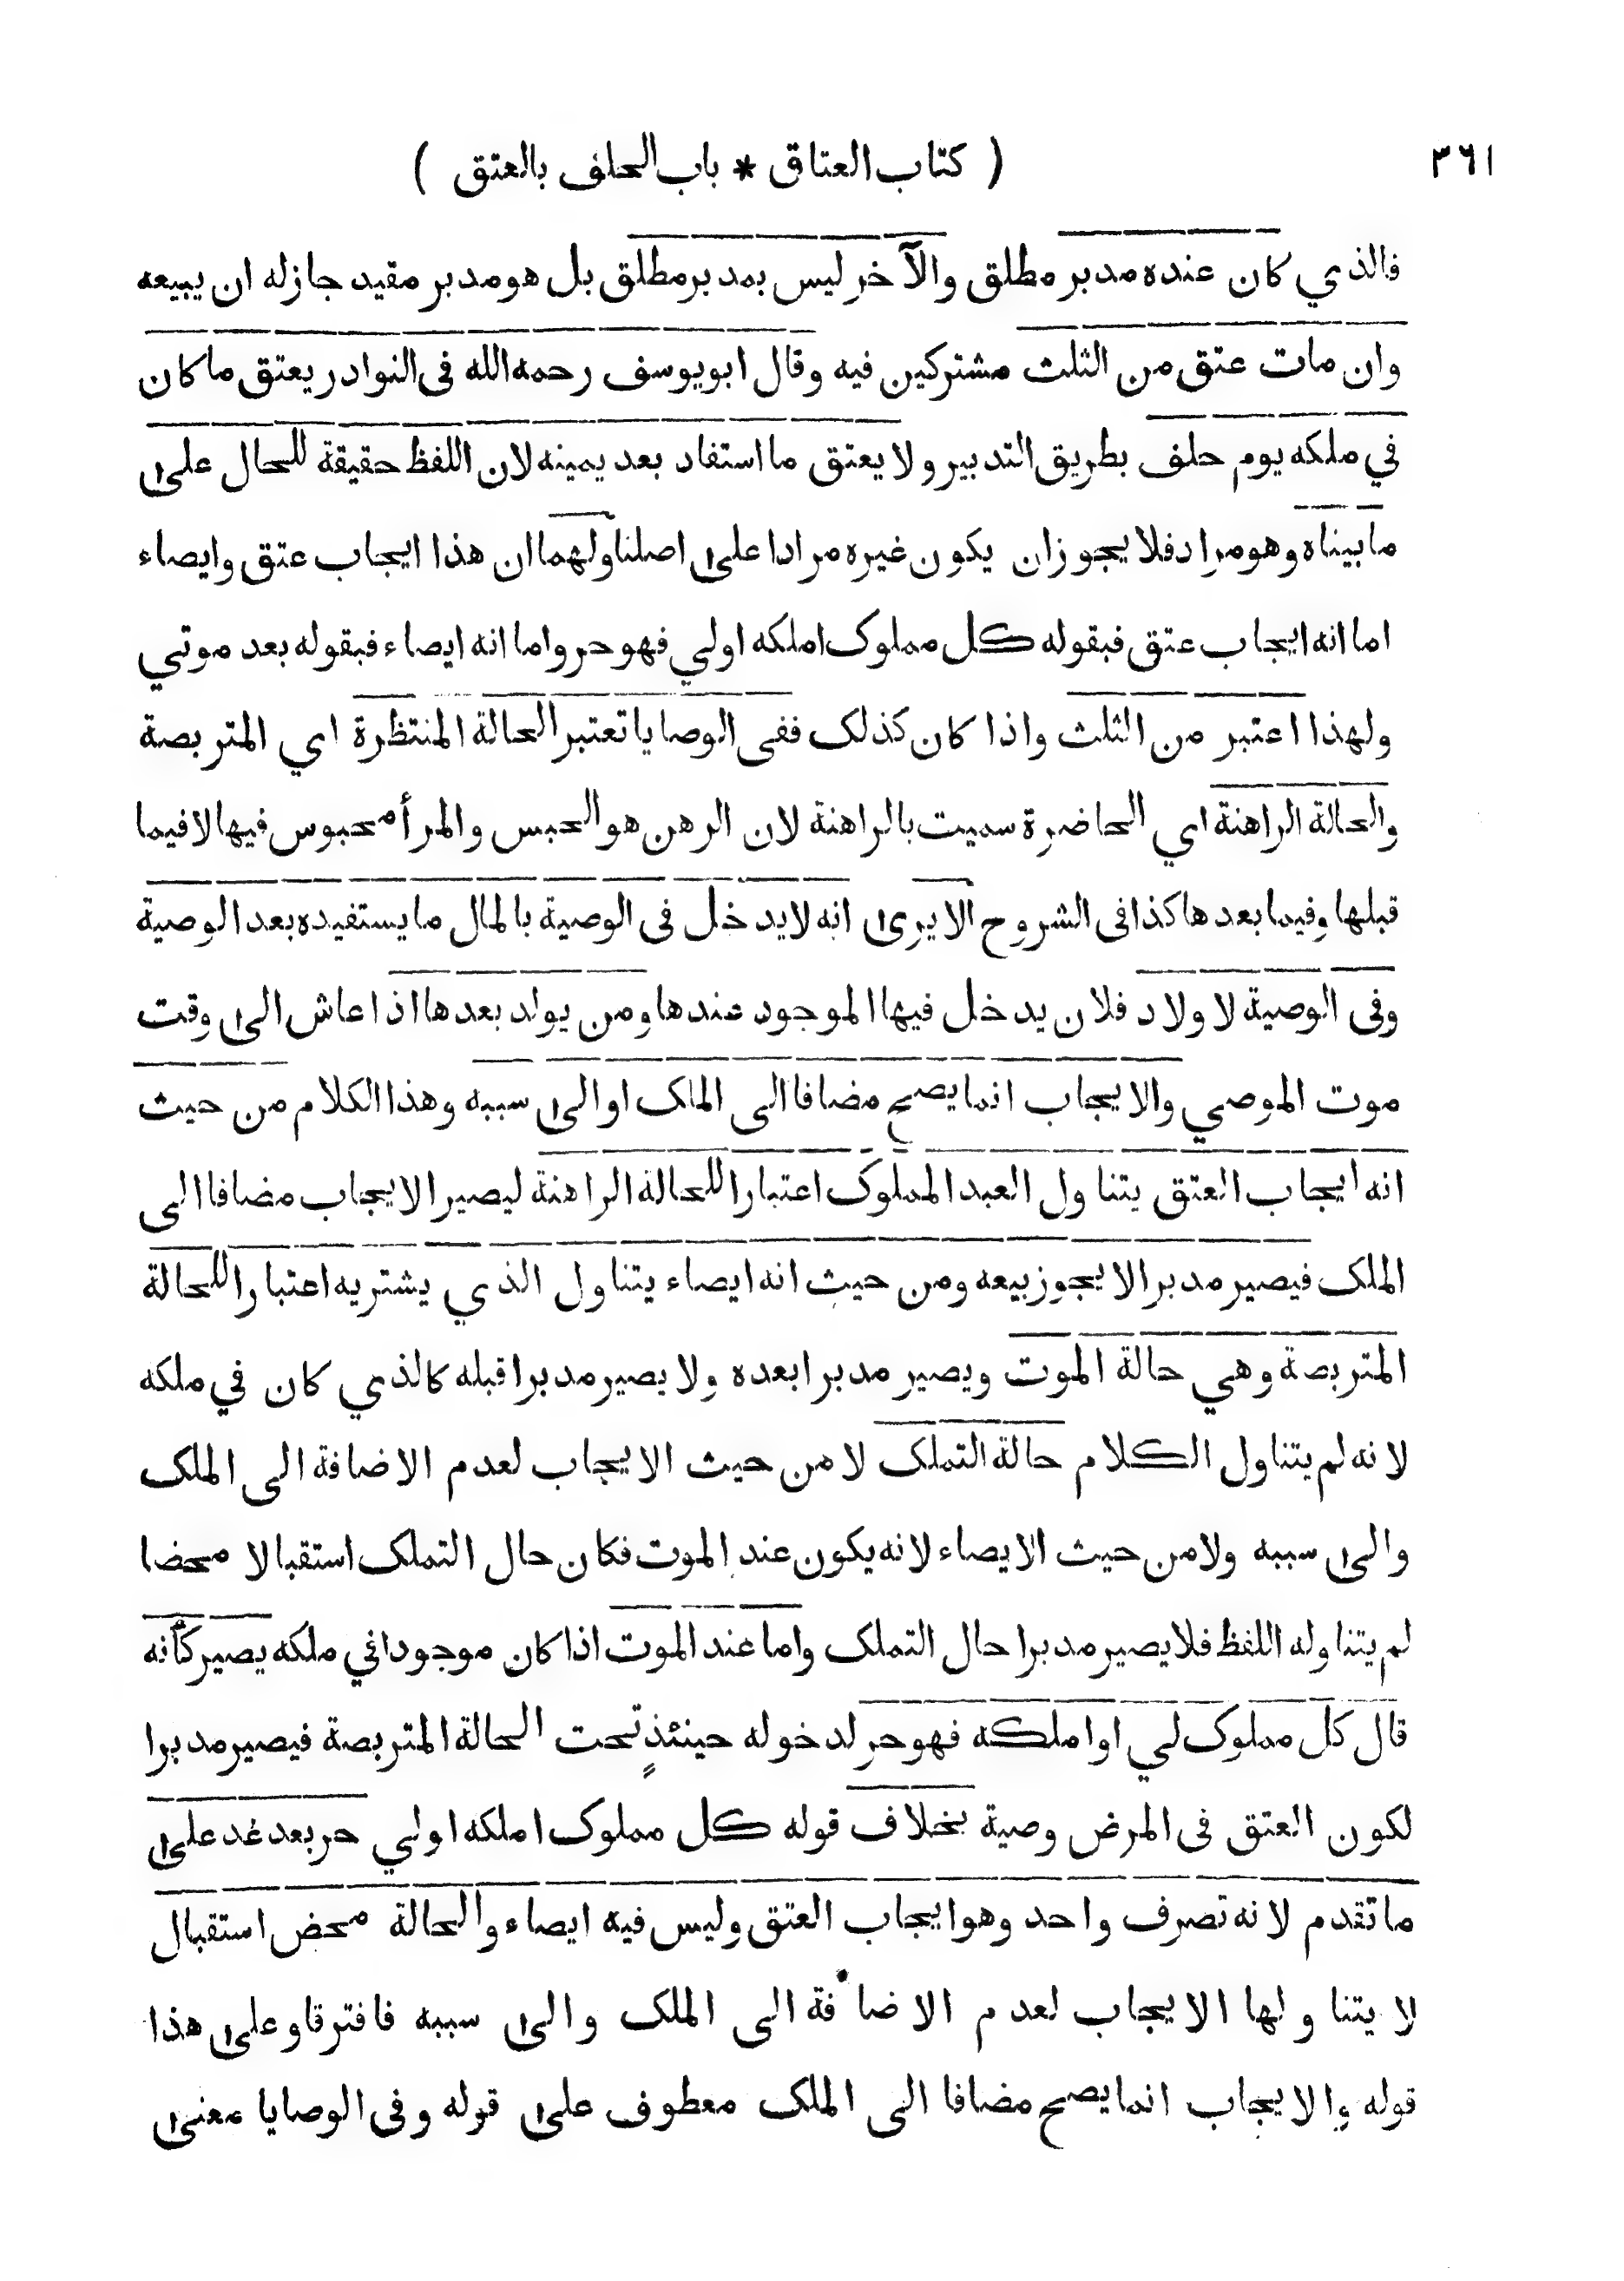 ( كتاب العتاق * باب الحلف بالعتق )
٣٦١
فالذي كان عنده مدبر مطلق والآخر ليس بمدبر مطلق بل هو مدبر مقيد جاز له ان يبيعه
وان مات عتق من الثلث مشتركين فيه وقال ابو يوسف رحمه الله فى النوادر يعتق ما كان
في ملكه يوم حلف بطريق التدبير ولا يعتق ما استفاد بعد يمينه لان اللفظ حقيقة للحال على
ما بيناه وهو مراد فلا يجوز ان يكون غيره مرادا على اصلنا ولهما ان هذا ايجاب عتق وايصاء
اما انه ايجاب عتق فبقوله كل مملوك املكه او لي فهو حر واما انه ايصاء فبقوله بعد موتي
ولهذا اعتبر من الثلث واذا كان كذلك ففى الوصايا تعتبر الحالة المنتظرة اي المتربصة
والحالة الراهنة اي الحاضرة سميت بالراهنة لان الرهن هو الحبس والمرأ محبوس فيها لا فيما
قبلها وفيما بعدها كذا فى الشروح الا يرى انه لا يدخل فى الوصية بالمال ما يستفيده بعد الوصية
وفى الوصية لاولاد فلان يدخل فيها الموجود عندها ومن يولد بعدها اذا عاش الى وقت
موت الموصي والايجاب انما يصح مضافا الى الملك او الى سببه وهذا الكلام من حيث
انه ايجاب العتق يتناول العبد المملوك اعتبارا للحالة الراهنة ليصير الايجاب مضافا الى
الملك فيصير مدبرا لا يجوز بيعه ومن حيث انه ايصاء يتناول الذي يشتريه اعتبارا للحالة
المتربصة وهي حالة الموت ويصير مدبرا بعده ولا يصير مدبرا قبله كالذي كان في ملكه
لانه لم يتناول الكلام حالة التملك لا من حيث الايجاب لعدم الاضافة الى الملك
والى سببه ولا من حيث الايصاء لانه يكون عند الموت فكان حال التملك استقبالا محضا
لم يتناوله اللفظ فلا يصير مدبرا حال التملك واما عند الموت اذا كان موجودا في ملكه يصير كأنه
قال كل مملوك لي او املكه فهو حر لدخوله حينئذٍ تحت الحالة المتربصة فيصير مدبرا
لكون العتق فى المرض وصية بخلاف قوله كل مملوك املكه او لي حر بعد غد على
ما تقدم لانه تصرف واحد وهو ايجاب العتق وليس فيه ايصاء والحالة محض استقبال
لا يتناولها الايجاب لعدم الاضافة الى الملك والى سببه فافترقا وعلى هذا
قوله والايجاب انما يصح مضافا الى الملك معطوف على قوله وفى الوصايا معنى